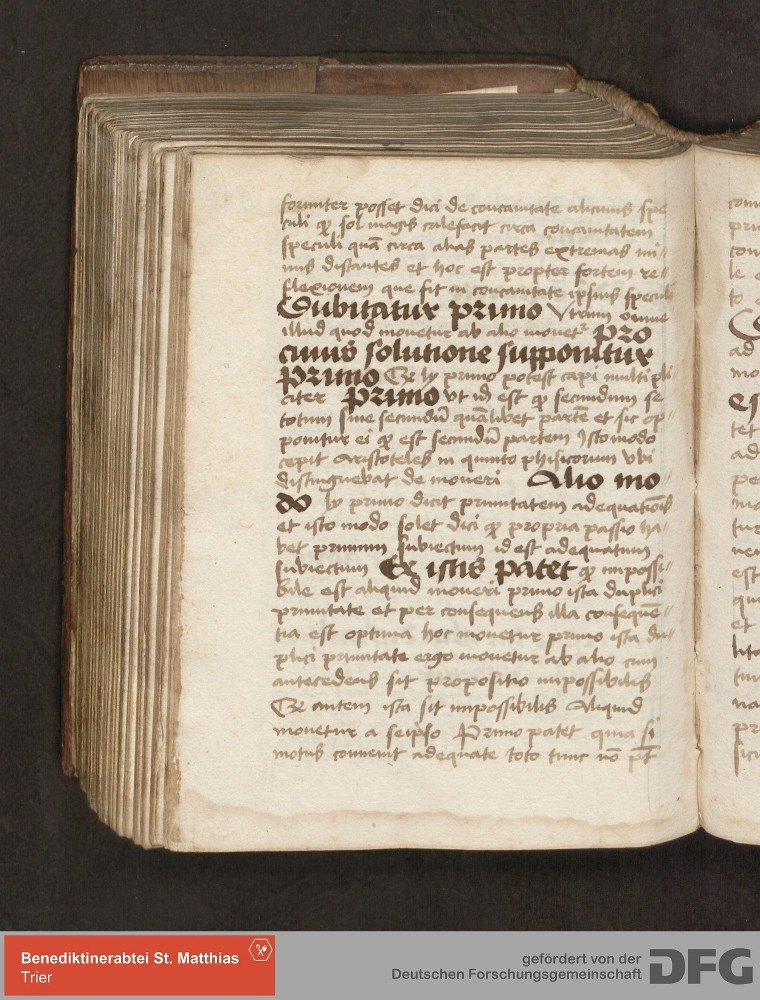 formiter posset dici de concauitate alicuius spe
culi qꝫ sol magis calefacit circa concauitatem
speculi quā circa alias partes extremas mi〃
nus distantes et hoc est propter fortem re〃
flexionem que fit in concauitate ipsius speculi
Dubitatur primo Vtrum omne
illud quod mouetur ab alio mouetᷣ Pro
cuius solutione supponitur
Primo Qꝫ ly primo potest capi multipli
citer Primo vt idē est qꝫ secundum se
totum siue secundū quālibet partē et sic op〃
ponitur ei qꝫ est secundū partem Isto modo
cepit Aristoteles in quinto phisicorum vbi
distinguebat de moueri Alio mo〃
do ly primo dicit primitatem adequatiōis
et isto modo solet dici qꝫ propria passio ha〃
bet primum subiectum id est adequatum
subiectum Ex istis patet qꝫ impossi〃
bile est aliquid moueri primo ista duplici
primitate et per consequens illa consequē〃
tia est optima hoc mouetur primo ista du〃
plici primitate ergo mouetur ab alio cum
antecedens sit propositio impossibilis
Qꝫ autem ista sit impossibilis Aliquid
mouetur a seipso Primo patet quia si
motus conuenit adequate toto tunc nō pt̄
con
pri
con
le
to
ad
mo
es
tet
ad
pe
mo
tur
uer
est
qu
et
lita
tur
na
pr
sic
Benediktinerabtei St. Matthias
Trier
gefördert von der
Deutschen Forschungsgemeinschaft
DFG